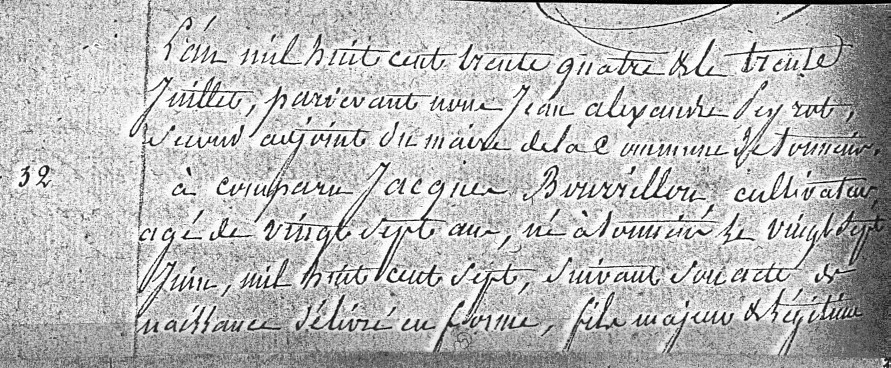 L'an mil huit cent trente quatre & le trente
Juillet, pardevant nous Jean alexandre Peyrot,
second adjoint du maire de la Commune de tonneins.
32
à comparu Jacques Bourrillon, cultivateur,
agé de vingt sept ans, né à tonneins le vingt sept
Juin, mil huit cent sept, suivant son acte de
naissance délivré en forme, fils majeur & légitime